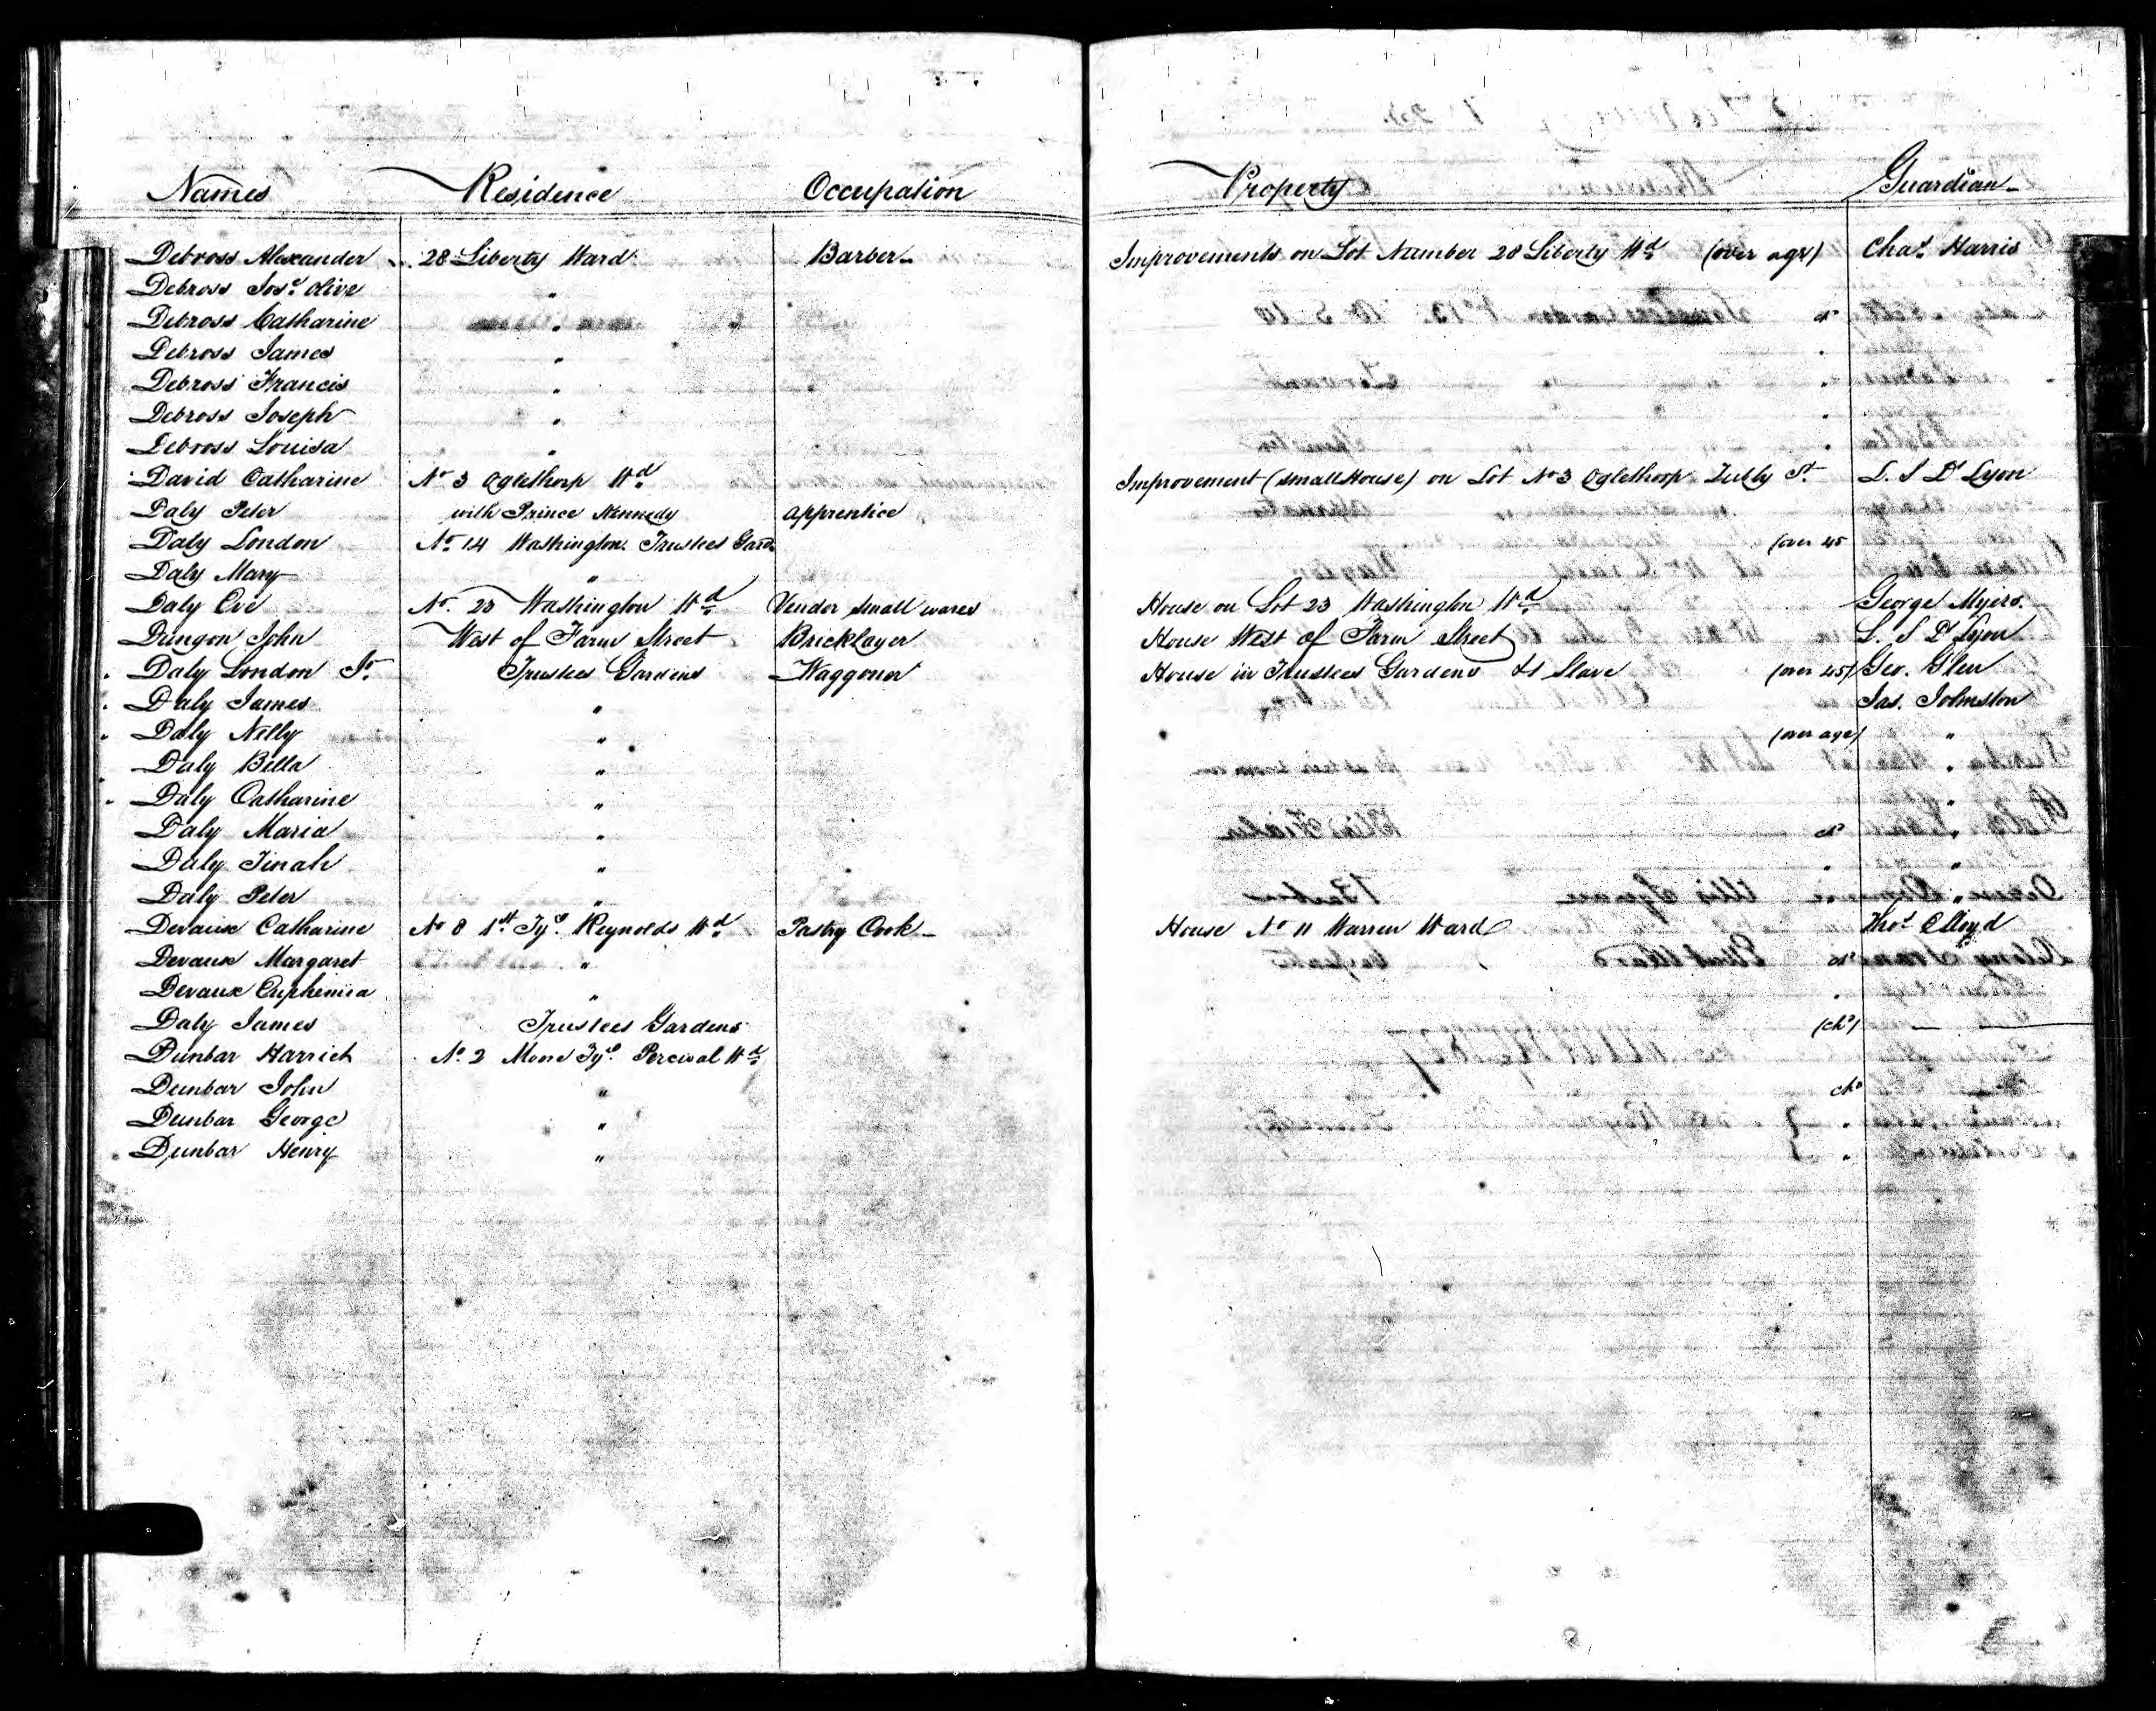 Names Residence Occupation Property Guardian
Debross Alexander 28 Liberty Ward Barber Improvements on Lot Number 28 Liberty Wd (over age) Chas. Harris
Debross Jose. Olive "
Debross Catharine " ch
Debross James " "
Debross Francis " "
Debross Joseph " "
Debross Louisa " "
David Catharine No 3 Oglethorp Wd Improvement (small House) on Lot No 3 Oglethorp L. S D Lyon
Daly Peter with Prince Kennedy apprentice
Daly London No. 14 Washington Trustees Gard. (over 45
Daly Mary "
Daly Eve No. 23 Washington Wd Vender small wares House on Lot 23 Washington Wd George Myers.
Dungon John West of Farm Street Bricklayer House West of Farm Street L. S D Lyon
Daly London Jr. Trustees Gardens Waggoner House in Trustees Gardens & 1 Slave (over 45) Geo. Glen
Daly James " Jas. Johnston
Daly Nelly " (over age) "
Daly Bella " "
Daly Catharine " "
Daly Maria " ch "
Daly Tinah " " "
Daly Peter " " "
Devaux Catharine No 8 1st Tyg. Reynolds Wd Pastry Cook House No 11 Warren Ward Thos. C Lloyd
Devaux Margaret " ch "
Devaux Euphemia " "
Daly James Trustees Gardens (ch) —
Dunbar Harriet No. 2 Moore Tyg. Percival Wd
Dunbar John " ch
Dunbar George " "
Dunbar Henry " "